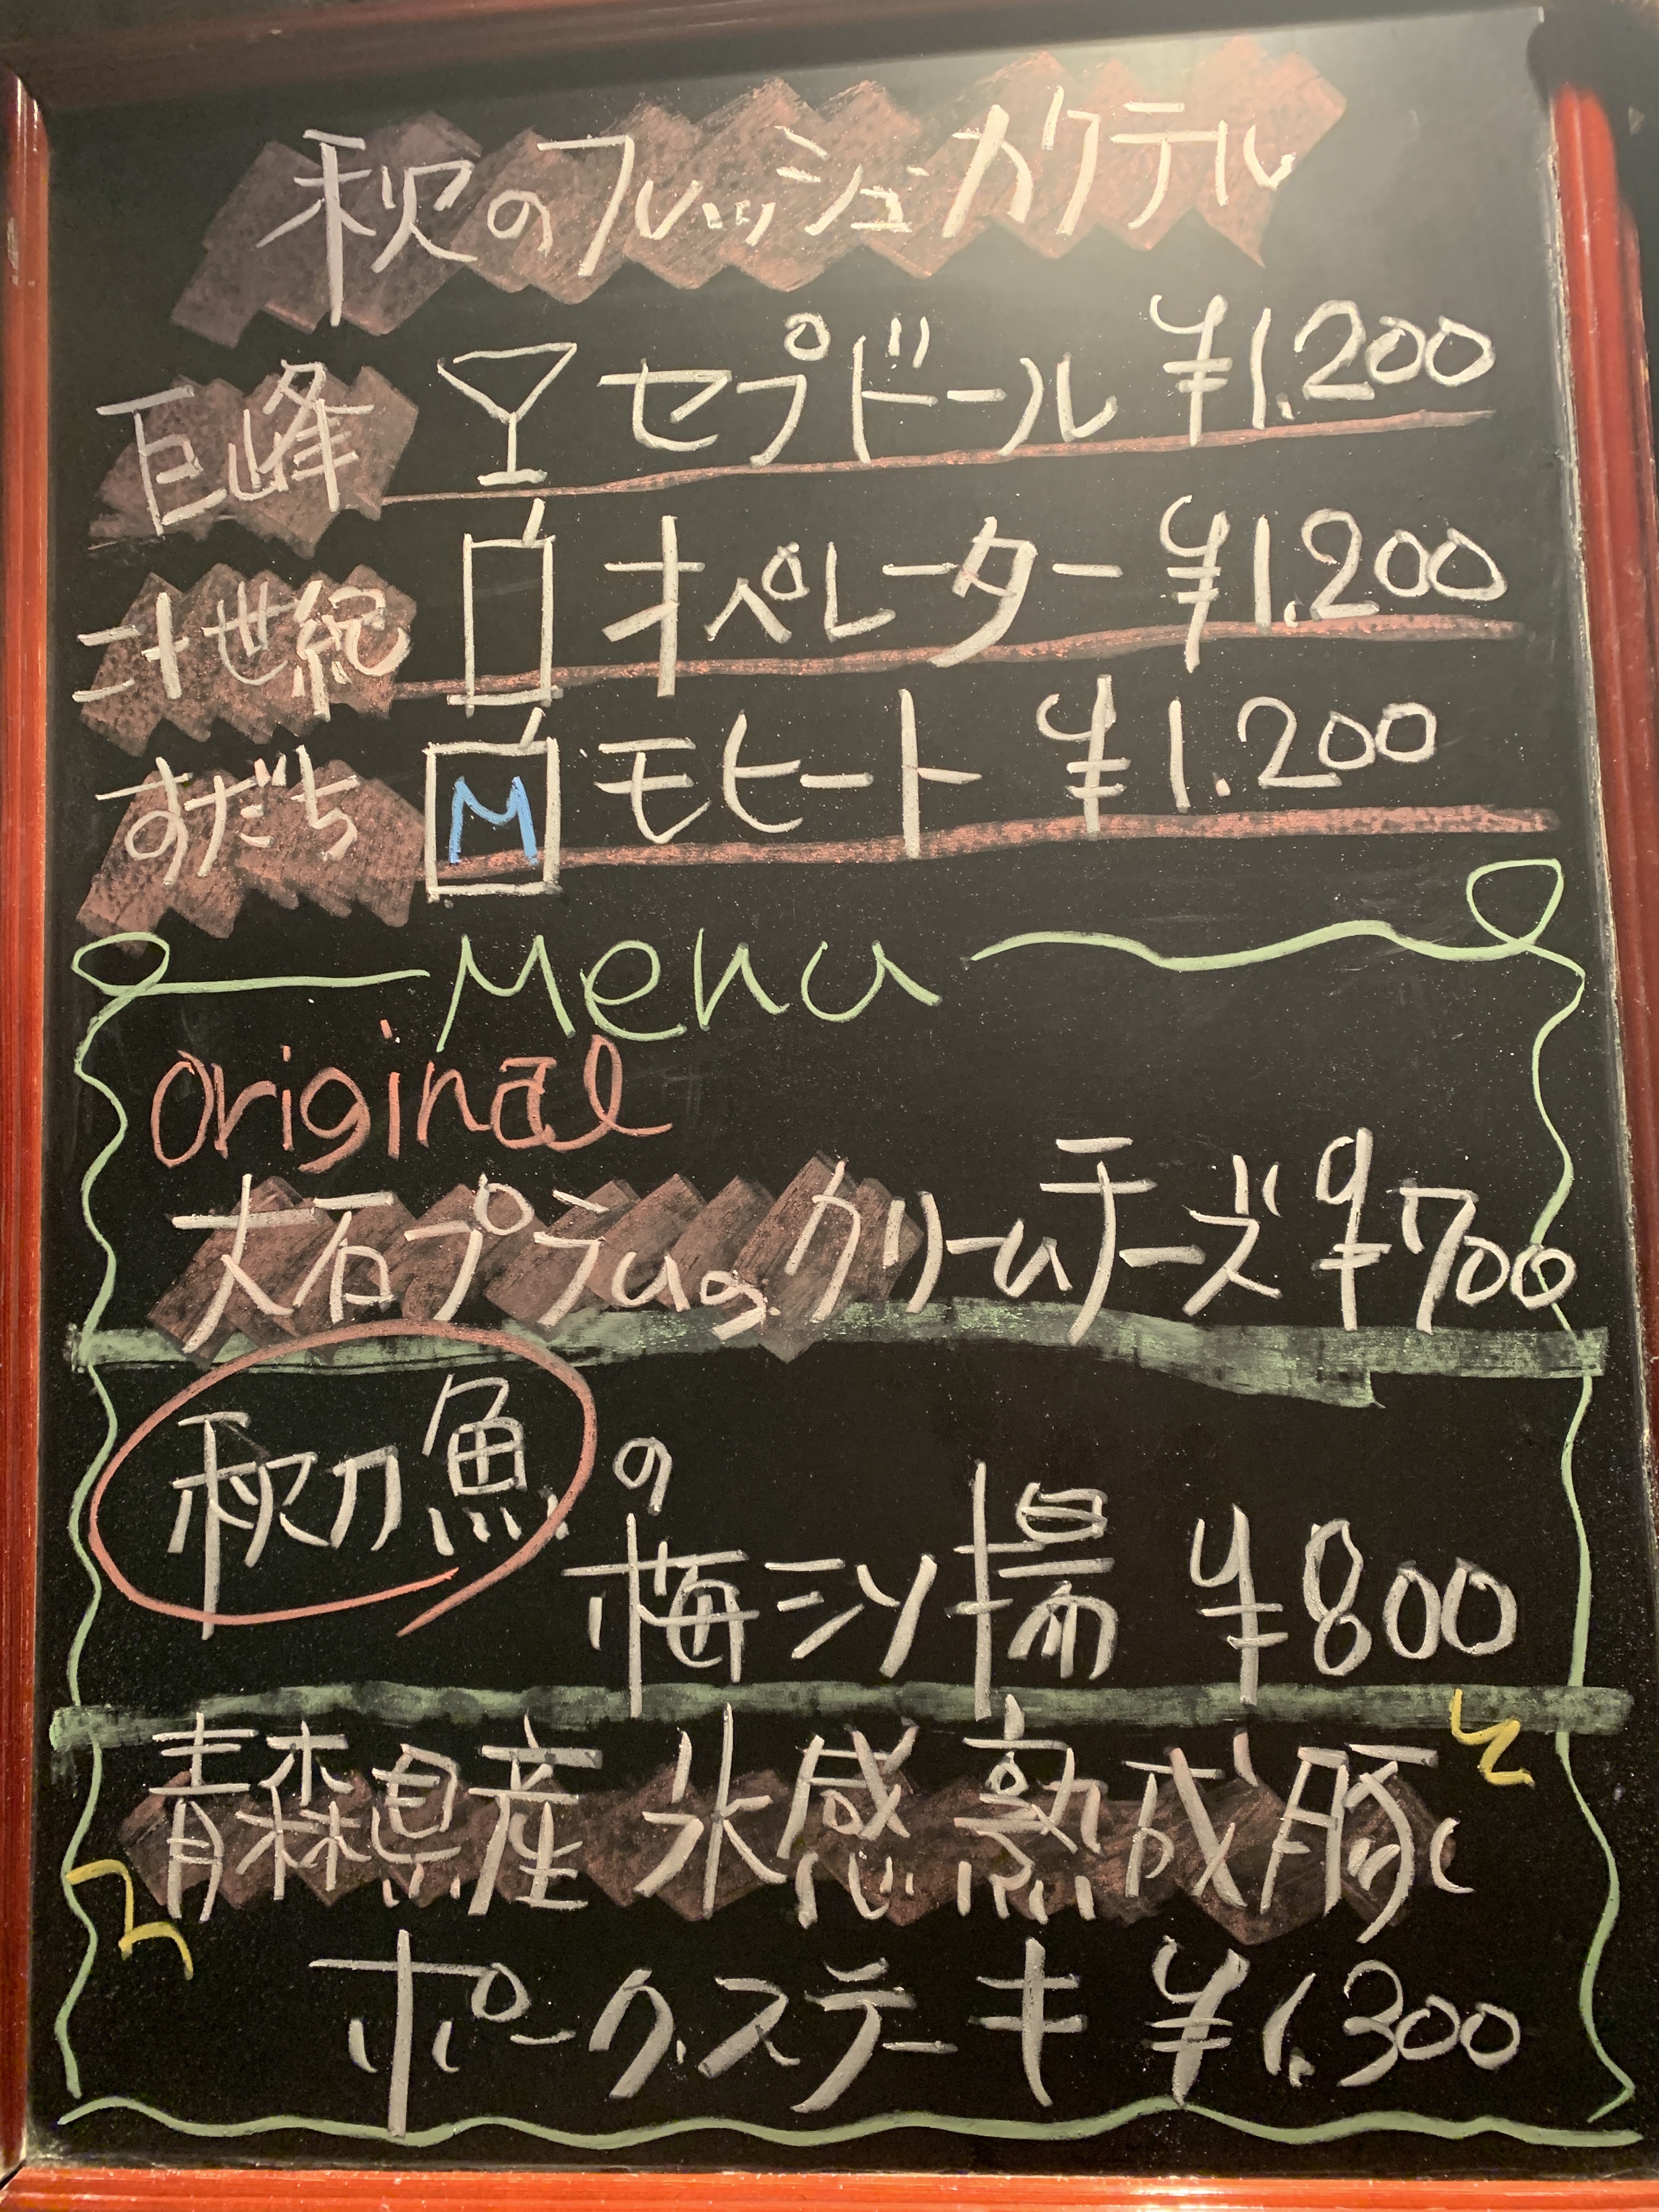 秋のフレッシュカクテル
巨峰 セプドール ¥1.200
二十世紀 オペレーター ¥1.200
すだち M モヒート ¥1.200
Menu
Original
大石プラムのクリームチーズ ¥700
秋刀魚の
梅シソ揚 ¥800
青森県産 氷感熟成豚
ポークステーキ ¥1.300